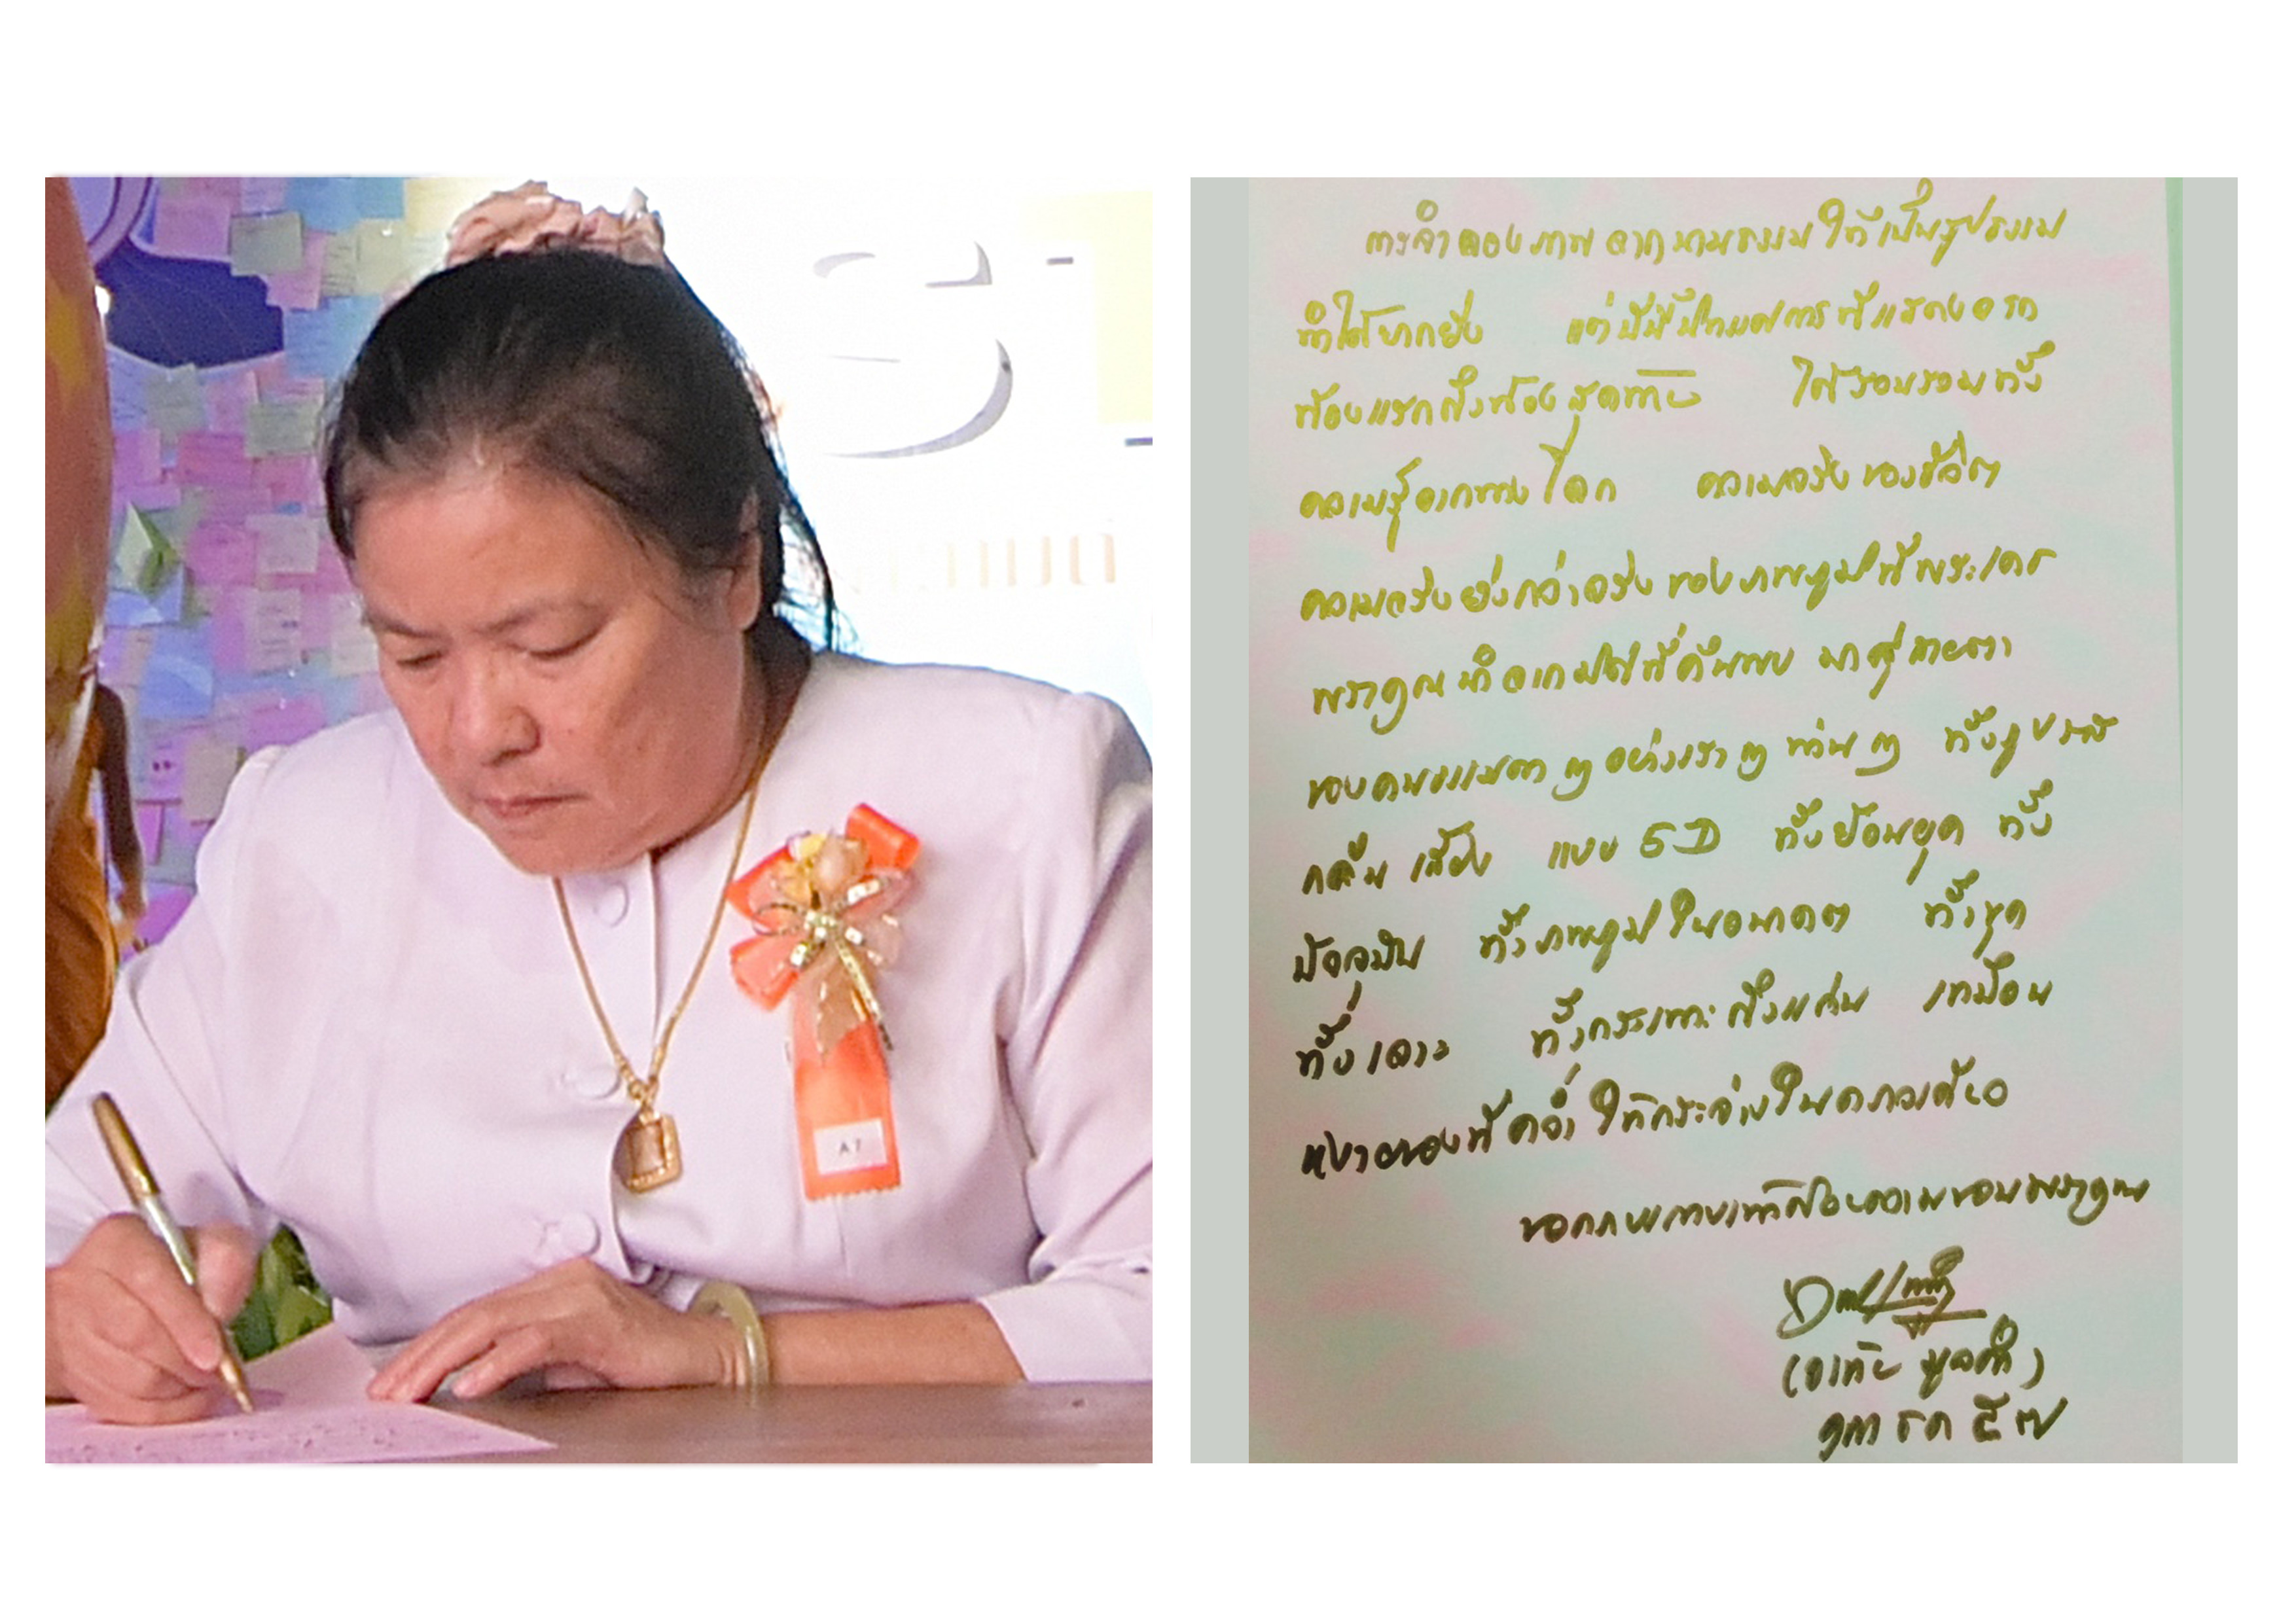 A7
การจำลองภาพจากนามธรรมให้เป็นรูปธรรม
ทำได้ยากยิ่ง แต่นี่มีนิทรรศการที่แสดงจาก
ห้องแรกถึงห้องสุดท้าย ได้รวบรวมทั้ง
ความรู้จากทางโลก ความจริงของชีวิต
ความจริงยิ่งกว่าจริงของภพภูมิที่พระเดช
พระคุณนำจากที่ค้นพบ มาสู่สายตา
ของคนธรรมดาๆ อย่างเราๆ ท่านๆ ทั้งรูป รส
กลิ่น เสียง แบบ 5D ทั้งย้อนยุค ทั้ง
ปัจจุบัน ทั้งภพภูมิในอนาคต ทั้งขุด
ทั้งเจาะ ทั้งกระเทาะถึงแก่น เหมือน
หงายของที่คว่ำ ให้กระจ่างในคราวเดียว
ขอกราบแทบเท้าด้วยความขอบพระคุณ